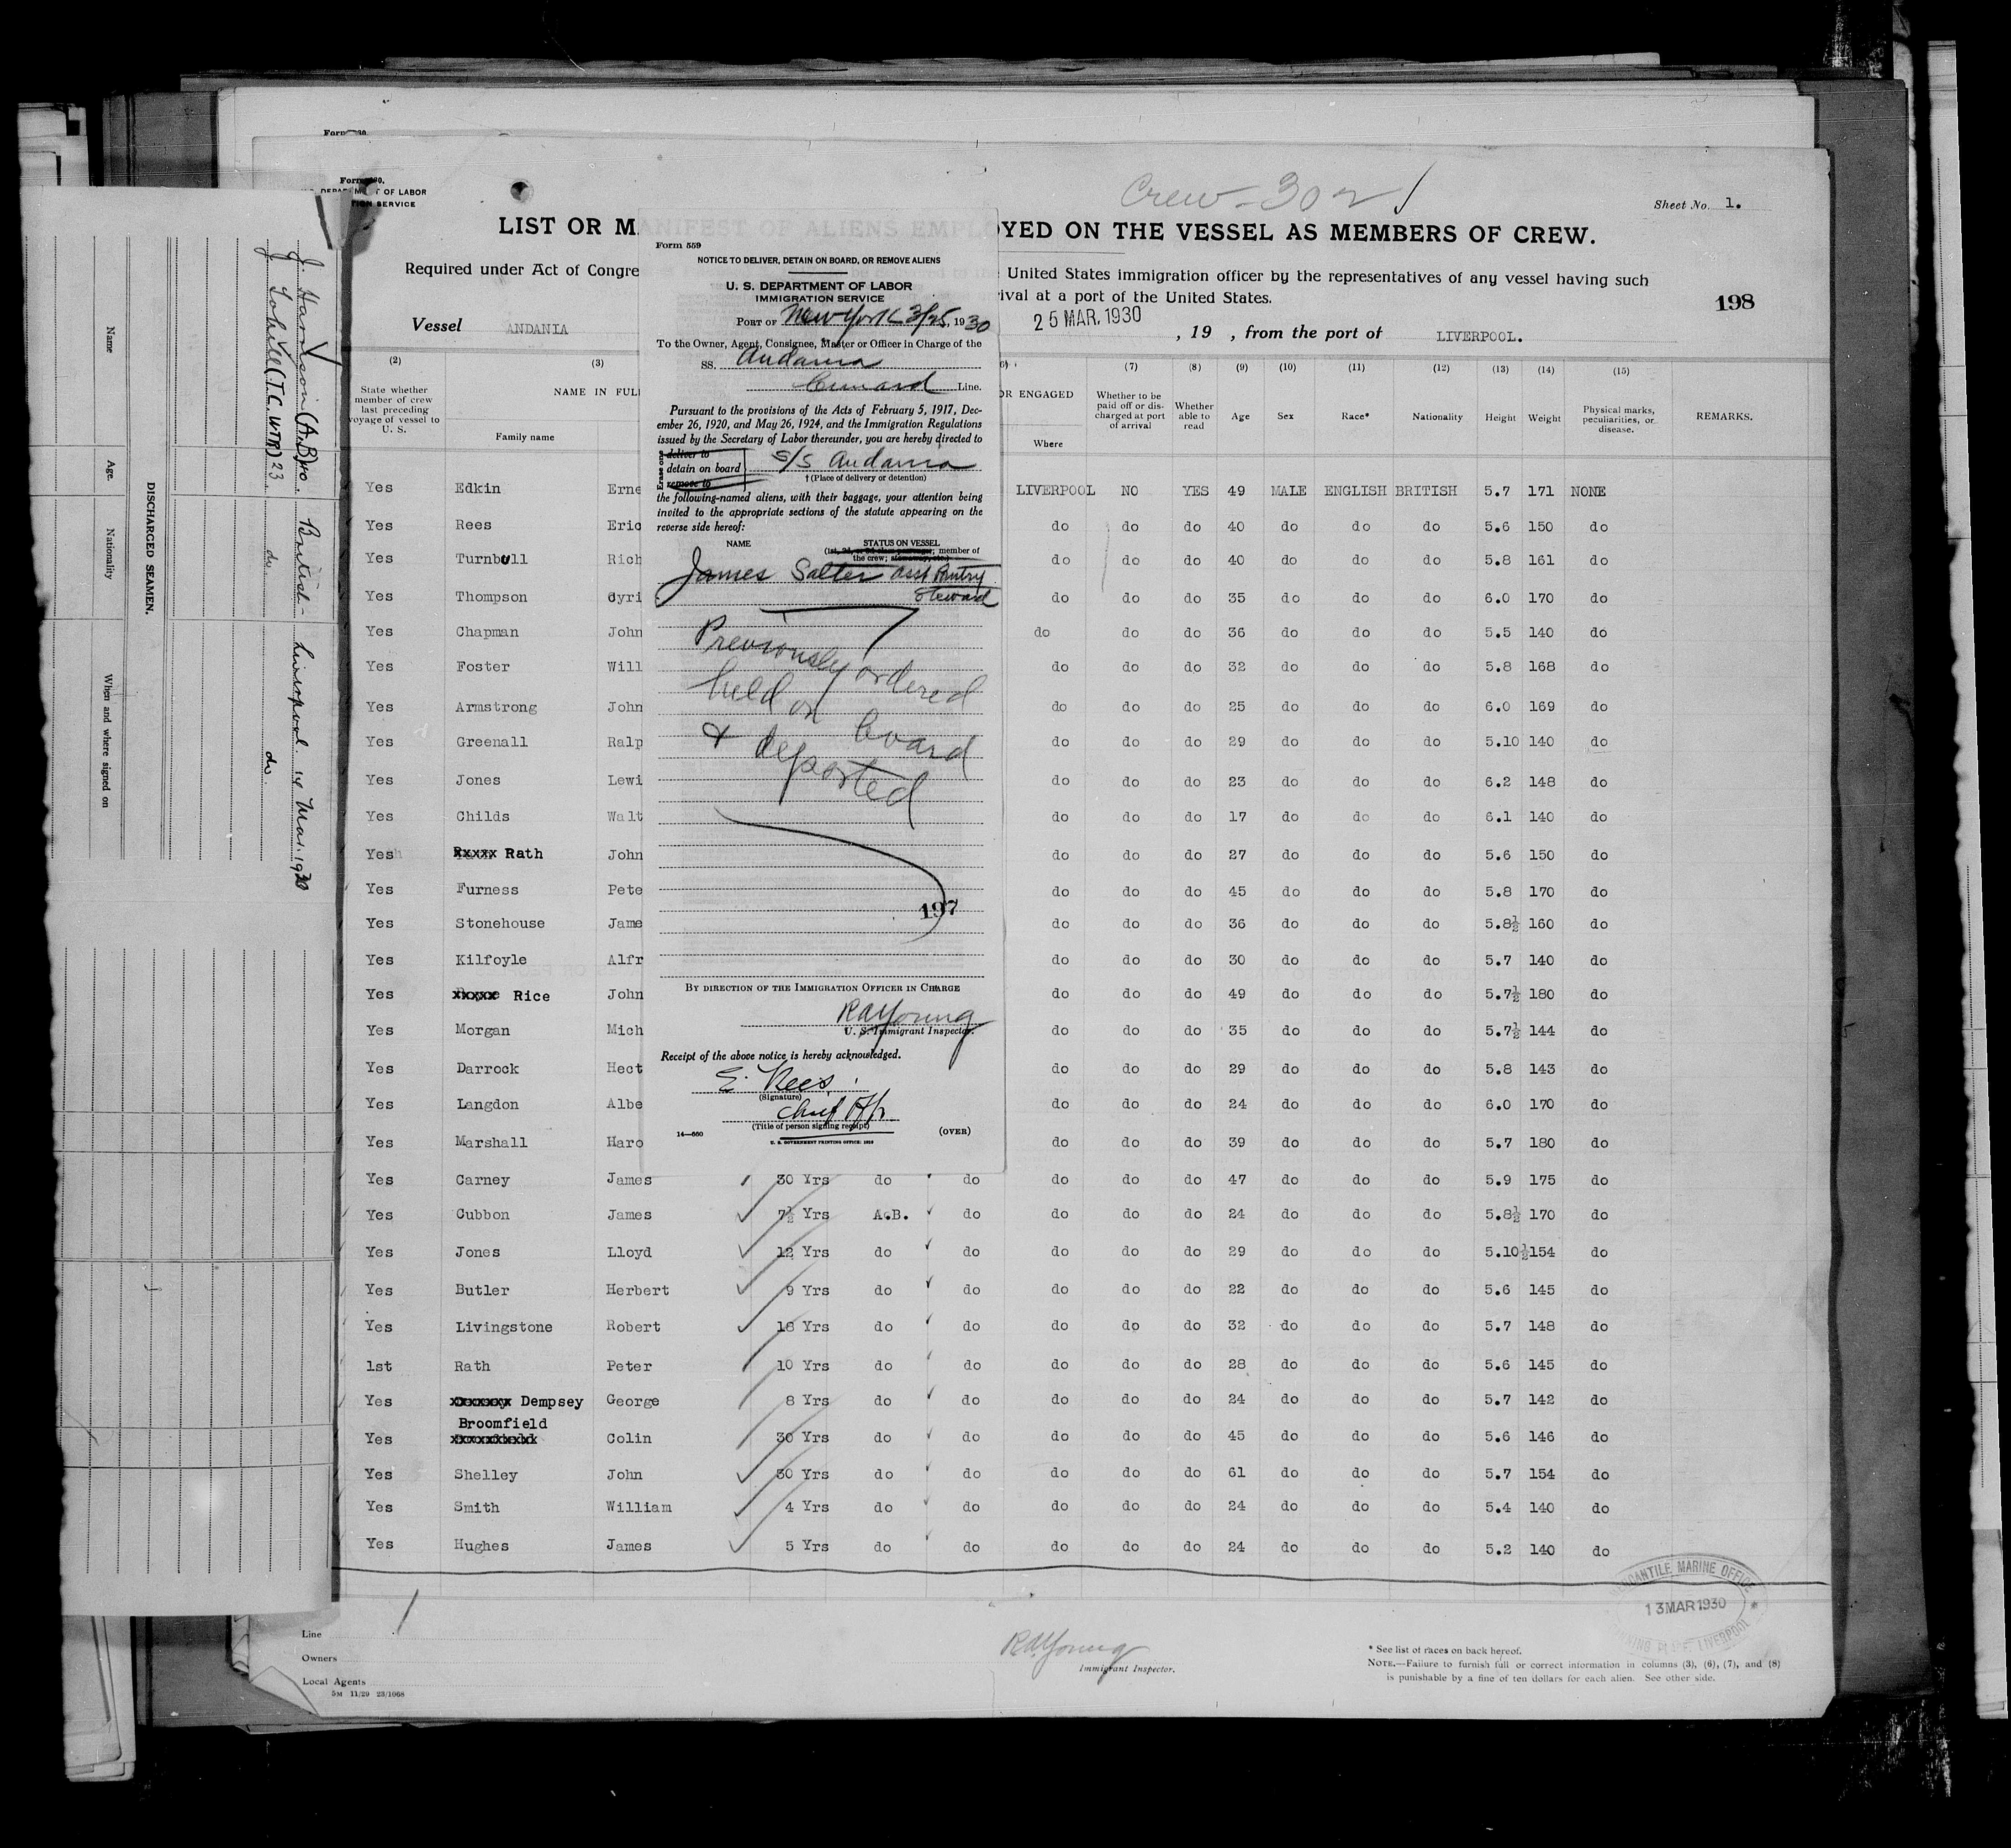 Form
Form 680.
DEPARTMENT OF LABOR
TION SERVICE
Crew - 302
Sheet No. 1.
LIST OR MANIFEST OF ALIENS EMPLOYED ON THE VESSEL AS MEMBERS OF CREW.
Required under Act of Congre
United States immigration officer by the representatives of any vessel having such
ival at a port of the United States.
198
Vessel ANDANIA
25 MAR. 1930
, 19 , from the port of LIVERPOOL.
(2) (3) (7) (8) (9) (10) (11) (12) (13) (14) (15)
State whether member of crew last preceding voyage of vessel to U. S.
NAME IN FULL
Family name
OR ENGAGED
Where
Whether to be paid off or discharged at port of arrival
Whether able to read
Age Sex Race* Nationality Height Weight
Physical marks, peculiarities, or disease.
REMARKS.
Yes Edkin Erne LIVERPOOL NO YES 49 MALE ENGLISH BRITISH 5.7 171 NONE
Yes Rees Eric do do do 40 do do do 5.6 150 do
Yes Turnbull Rich do do do 40 do do do 5.8 161 do
Yes Thompson Cyri do do do 35 do do do 6.0 170 do
Yes Chapman John do do do 36 do do do 5.5 140 do
Yes Foster Will do do do 32 do do do 5.8 168 do
Yes Armstrong John do do do 25 do do do 6.0 169 do
Yes Greenall Ralp do do do 29 do do do 5.10 140 do
Yes Jones Lewi do do do 23 do do do 6.2 148 do
Yes Childs Walt do do do 17 do do do 6.1 140 do
Yes Rxxxx Rath John do do do 27 do do do 5.6 150 do
Yes Furness Pete do do do 45 do do do 5.8 170 do
Yes Stonehouse Jame do do do 36 do do do 5.8½ 160 do
Yes Kilfoyle Alfr do do do 30 do do do 5.7 140 do
Yes xxxxx Rice John do do do 49 do do do 5.7½ 180 do
Yes Morgan Mich do do do 35 do do do 5.7½ 144 do
Yes Darrock Hect do do do 29 do do do 5.8 143 do
Yes Langdon Albe do do do 24 do do do 6.0 170 do
Yes Marshall Haro do do do 39 do do do 5.7 180 do
Yes Carney James 30 Yrs do do do do do 47 do do do 5.9 175 do
Yes Cubbon James 7½ Yrs A.B. do do do do 24 do do do 5.8½ 170 do
Yes Jones Lloyd 12 Yrs do do do do do 29 do do do 5.10½ 154 do
Yes Butler Herbert 9 Yrs do do do do do 22 do do do 5.6 145 do
Yes Livingstone Robert 18 Yrs do do do do do 32 do do do 5.7 148 do
1st Rath Peter 10 Yrs do do do do do 28 do do do 5.6 145 do
Yes xxxxxxx Dempsey George 8 Yrs do do do do do 24 do do do 5.7 142 do
Broomfield
Yes xxxxxxxxxx Colin 30 Yrs do do do do do 45 do do do 5.6 146 do
Yes Shelley John 30 Yrs do do do do do 61 do do do 5.7 154 do
Yes Smith William 4 Yrs do do do do do 24 do do do 5.4 140 do
Yes Hughes James 5 Yrs do do do do do 24 do do do 5.2 140 do
Line
Owners
Local Agents
5M 11/29 23/1068
RAYoung
Immigrant Inspector.
MERCANTILE MARINE OFFICE
13 MAR 1930
LIVERPOOL
* See list of races on back hereof.
NOTE.—Failure to furnish full or correct information in columns (3), (6), (7), and (8)
is punishable by a fine of ten dollars for each alien. See other side.
Form 559
NOTICE TO DELIVER, DETAIN ON BOARD, OR REMOVE ALIENS
U. S. DEPARTMENT OF LABOR
IMMIGRATION SERVICE
PORT OF New York 3/25, 1930
To the Owner, Agent, Consignee, Master or Officer in Charge of the
SS. Andania
Cunard Line.
Pursuant to the provisions of the Acts of February 5, 1917, Dec-
ember 26, 1920, and May 26, 1924, and the Immigration Regulations
issued by the Secretary of Labor thereunder, you are hereby directed to
Erase one
deliver to
detain on board S/S Andania
remove to
† (Place of delivery or detention)
the following-named aliens, with their baggage, your attention being
invited to the appropriate sections of the statute appearing on the
reverse side hereof:
NAME STATUS ON VESSEL
(1st, 2d, or 3d class passenger; member of
the crew; stowaway, etc.)
James Salter Asst Pantry
Steward
Previously ordered
held on board
& deported
197
BY DIRECTION OF THE IMMIGRATION OFFICER IN CHARGE
RAYoung
U. S. Immigrant Inspector.
Receipt of the above notice is hereby acknowledged.
E. Rees
(Signature)
Chief Ofr
(Title of person signing receipt)
14—660
U. S. GOVERNMENT PRINTING OFFICE: 1928
(OVER)
DISCHARGED SEAMEN.
Name Age. Nationality When and where signed on
J. Harrison (A.B) 40 British Liverpool. 14 Mar. 1930
(T.C. WTR) 23 do do